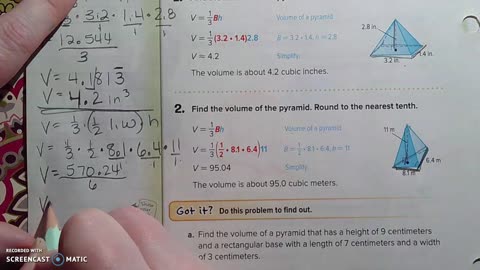 3 · 3.2 · 1.4 · 2.8
1 1
12.544
3
V = 4.1813
V = 4.2 in³
V = 1/3 (1/2 l·w) h
V = 1/3 · 1/2 · 8.1 · 6.4 · 11
1 1 1
V = 570.24
6
V
V = 1/3Bh Volume of a pyramid
V = 1/3(3.2 • 1.4)2.8 B = 3.2 • 1.4, h = 2.8
V ≈ 4.2 Simplify.
The volume is about 4.2 cubic inches.
2.8 in.
1.4 in.
3.2 in.
2. Find the volume of the pyramid. Round to the nearest tenth.
V = 1/3Bh Volume of a pyramid
V = 1/3(1/2 • 8.1 • 6.4)11 B = 1/2 • 8.1 • 6.4, h = 11
V = 95.04 Simplify.
The volume is about 95.0 cubic meters.
11 m
6.4 m
8.1 m
Got it? Do this problem to find out.
a. Find the volume of a pyramid that has a height of 9 centimeters
and a rectangular base with a length of 7 centimeters and a width
of 3 centimeters.
Show
RECORDED WITH
SCREENCAST MATIC